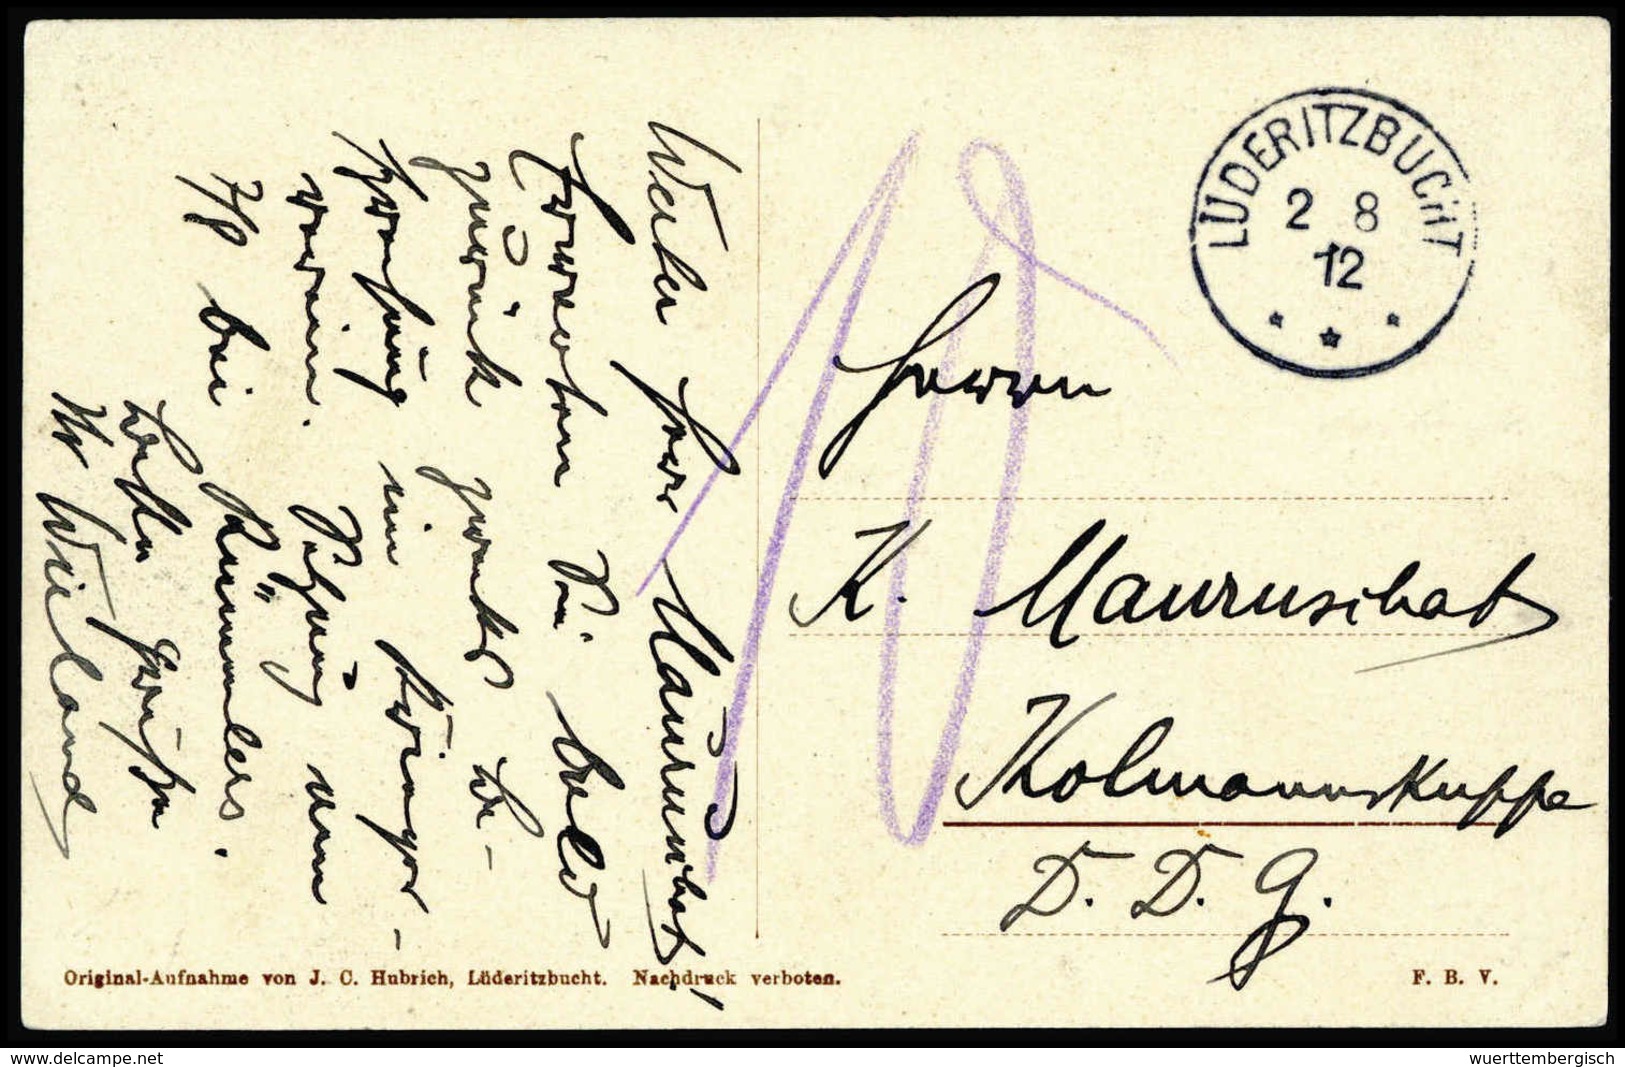 Werter Herr Mauruschat!
Erwarten Sie bald
zurück zwecks Be-
sprechung im Krieger-
verein. Sitzung am
7/8 bei Kümmlers.
Besten Gruß
Ihr Wieland
LÜDERITZBUCHT
2 8
12
10
Herrn
K. Mauruschat
Kolmannskuppe
D. D. G.
Original-Aufnahme von J. C. Hubrich, Lüderitzbucht. Nachdruck verboten.
F. B. V.
www.delcampe.net
wuerttembergisch